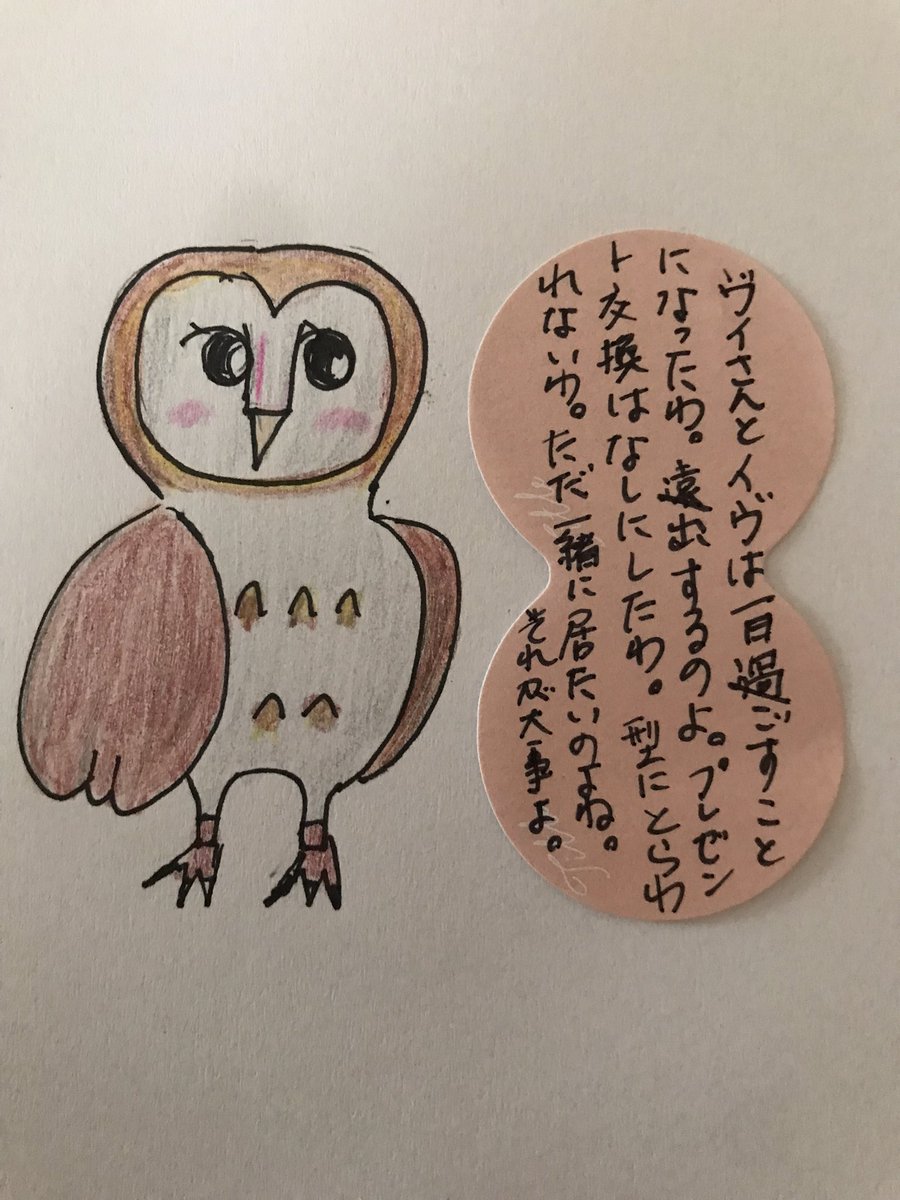 ヴィさんとイヴは一日過ごすこと
になったわ。遠出するのよ。プレゼン
ト交換はなしにしたわ。型にとらわ
れないわ。ただ一緒に居たいのよね。
それが大事よ。